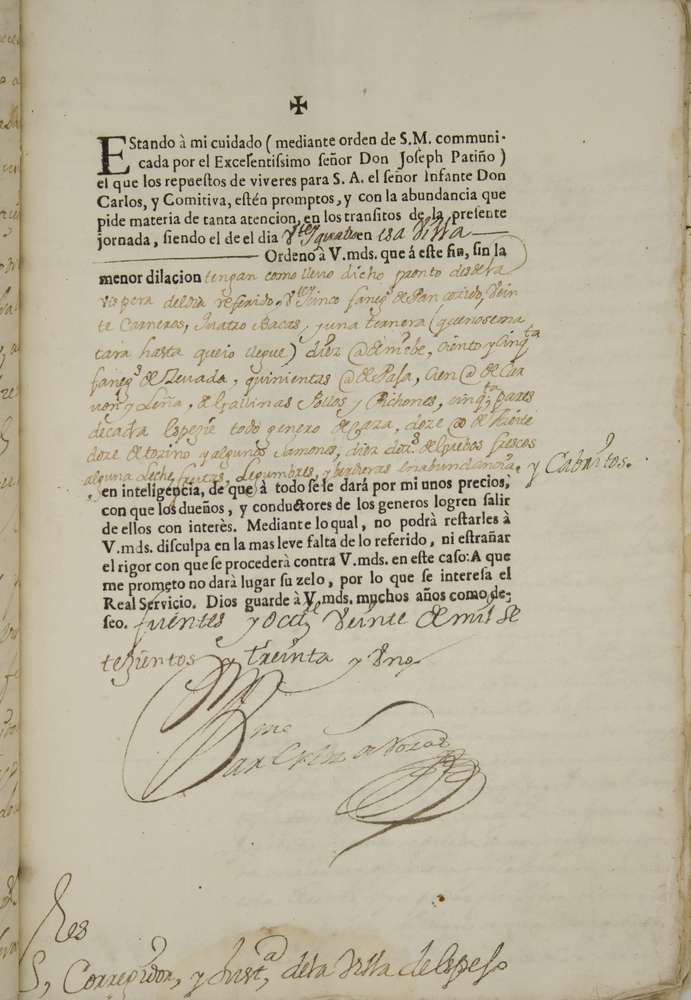 ✠
EStando à mi cuidado (mediante orden de S.M. communi-
cada por el Excelentissimo señor Don Joseph Patiño)
el que los repuestos de viveres para S. A. el señor Infante Don
Carlos, y Comitiva, estén promptos, y con la abundancia que
pide materia de tanta atencion, en los transitos de la presente
jornada, siendo el de el dia Vtey quatro en esa Villa
Ordeno à V.mds. que á este fin, sin la
menor dilacion tengan como llevo dicho pronto desde la
vispera del dia referido, Vtey Zinco faneg.s de Pan cozido, Vein
te Carneros, Quatro Bacas, y una ternera (que no se ma
tara hasta que io llegue) diez @ de niebe, ciento y cinq.ta
faneg.s de Zevada, quinientas @ de Paja, cien @ de Car
von, y Leña, de Gallinas Pollos y Pichones, cinq.ta pares
de cada espezie todo genero de Caza, doze @ de Azeite
doze de tozino y algunos Jamones, diez doz.s de Guebos frescos
alguna Leche, frutas, Legumbres, y en abundancia, y Cabritos.
en inteligencia, de que à todo se le dará por mi unos precios,
con que los dueños, y conductores de los generos logren salir
de ellos con interès. Mediante lo qual, no podrà restarles à
V.mds. disculpa en la mas leve falta de lo referido, ni estrañar
el rigor con que se procederà contra V.mds. en este caso: A que
me prometo no darà lugar su zelo, por lo que se interesa el
Real Servicio. Dios guarde à V.mds. muchos años como de-
seo. fuentes y Occt.e Veinte de mil se
tezientos y treinta y Uno
S.res Corregidor, y Just.a de la Villa de Espejo